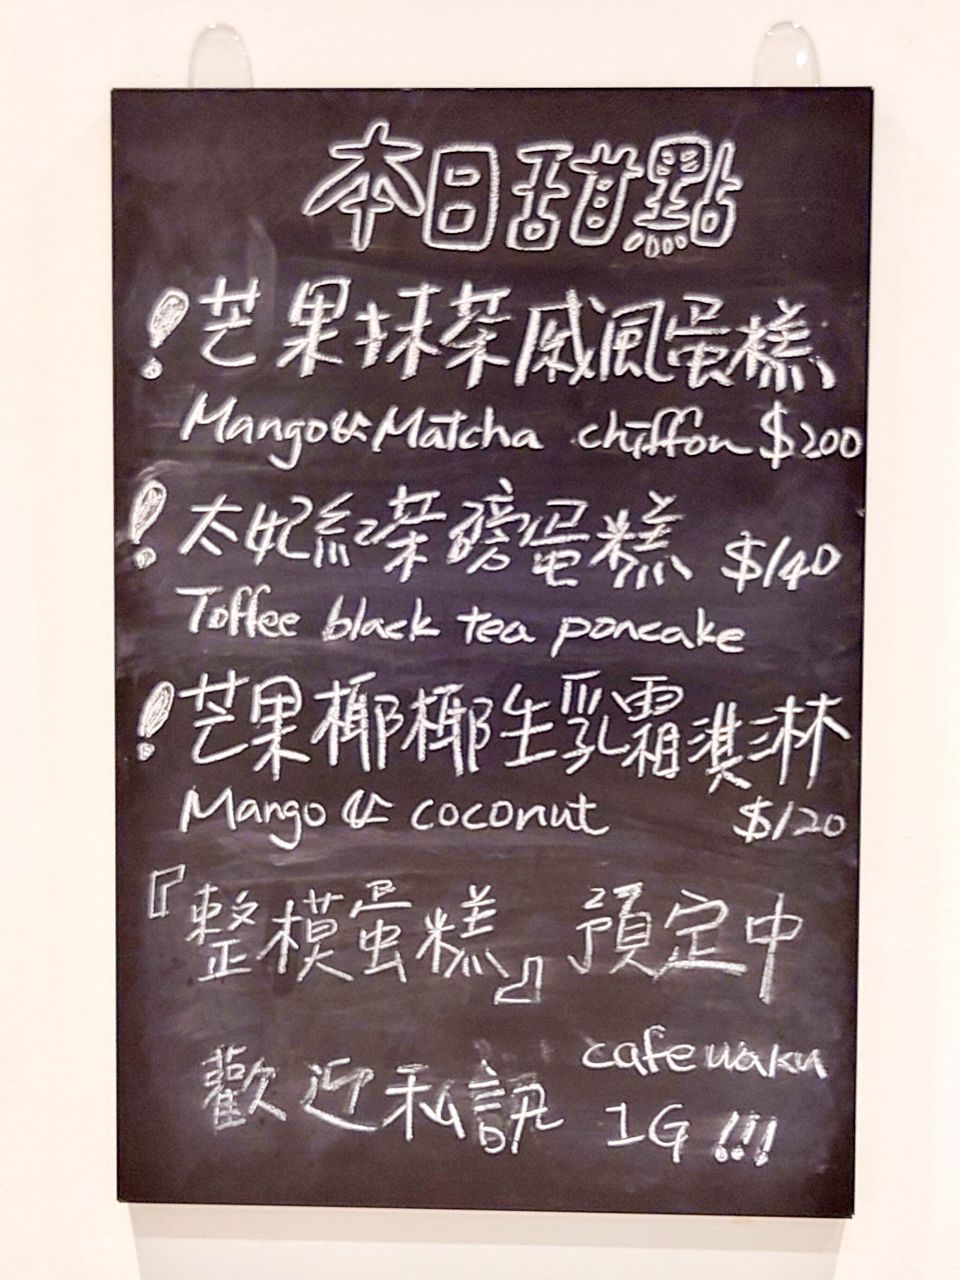 本日甜點
!芒果抹茶戚風蛋糕、
Mango & Matcha chiffon $200
!太妃紅茶磅蛋糕 $140
Toffee black tea poncake
!芒果椰椰生乳霜淇淋
Mango & coconut $120
『整模蛋糕』預定中
歡迎私訊 cafe waku
IG!!!